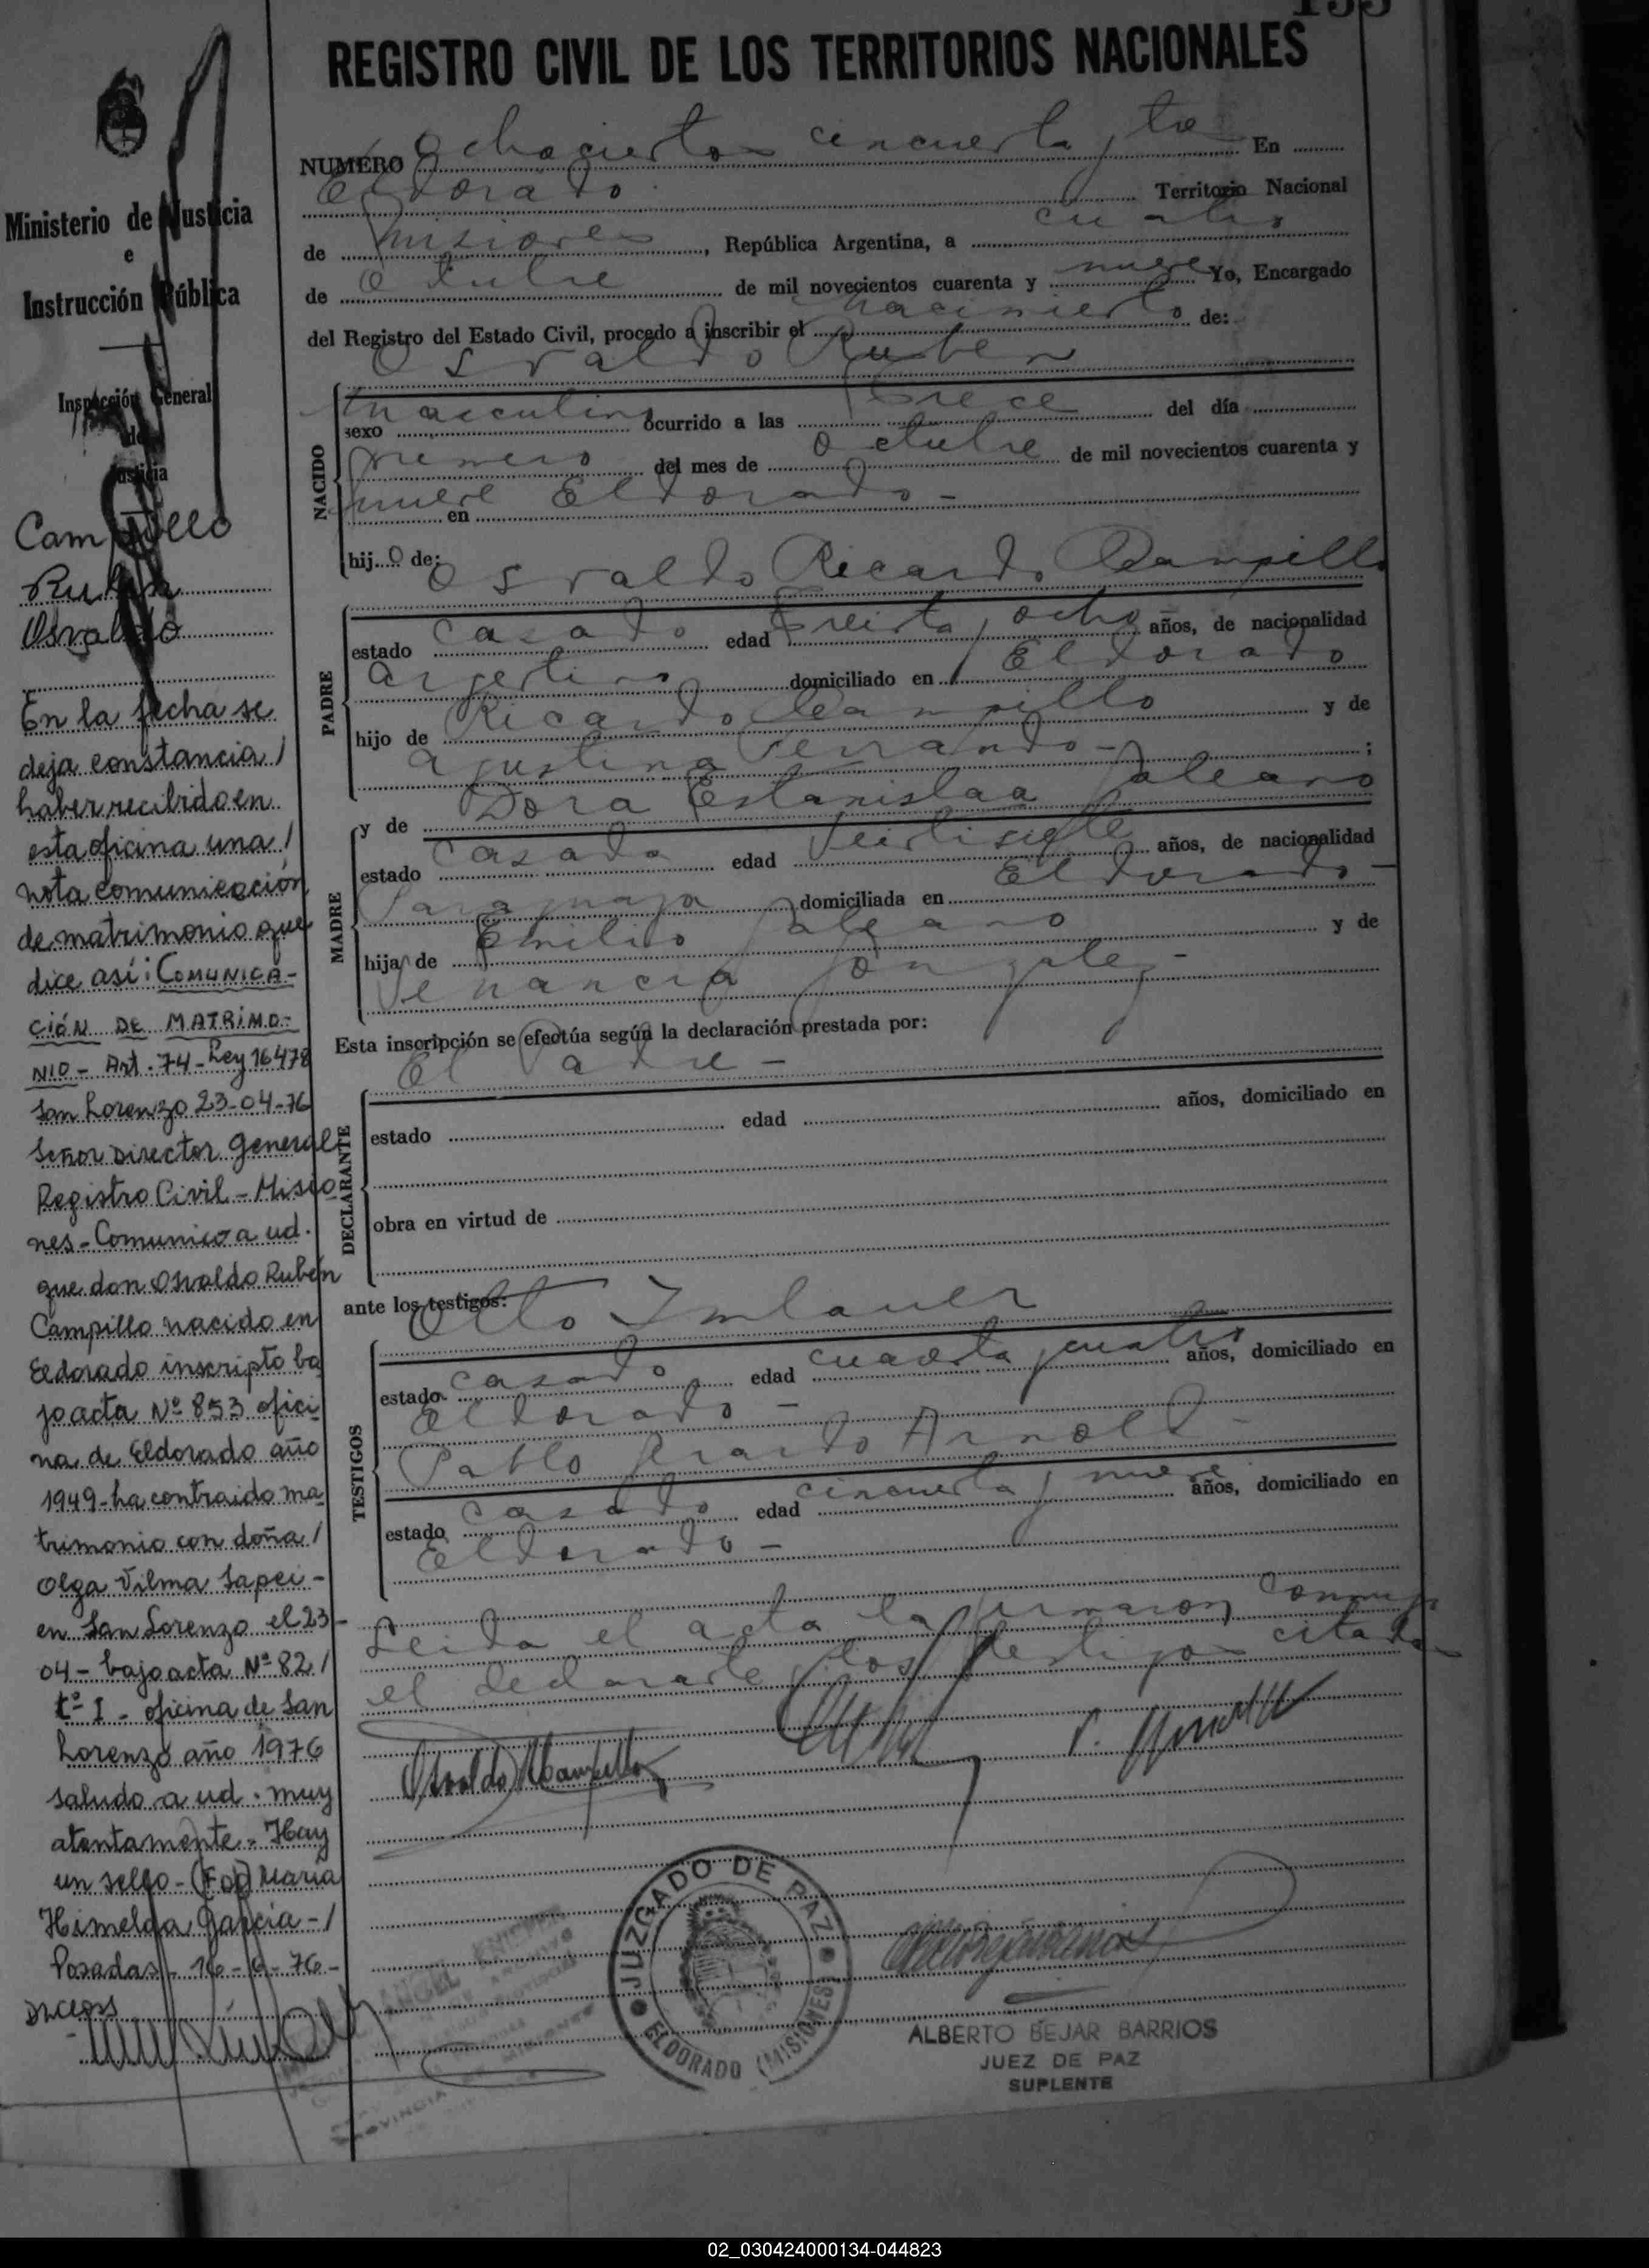 133
REGISTRO CIVIL DE LOS TERRITORIOS NACIONALES
Ministerio de Justicia
e
Instrucción Pública
Inspección General
de
Justicia
Campillo
Ruben
Osvaldo
En la fecha se
deja constancia /
haber recibido en
esta oficina una /
nota comunicación
de matrimonio que
dice así: COMUNICA-
CIÓN DE MATRIMO-
NIO - Art. 74 - Ley 16478
San Lorenzo 23-04-76
Señor Director General
Registro Civil - Misio
nes - Comunico a ud.
que don Osvaldo Rubén
Campillo nacido en
Eldorado inscripto ba
jo acta Nº 853 ofici
na de Eldorado año
1949 - ha contraido ma
trimonio con doña /
Olga Vilma Sapei -
en San Lorenzo el 23-
04 - bajo acta Nº 82 /
tº I - oficina de San
Lorenzo año 1976
saludo a ud. muy
atentamente - Hay
un sello - (Fdo) María
Himelda García - /
Posadas - 16 - 6 - 76 -
NUMERO Ochocientos cincuenta y tre En
Eldorado Territorio Nacional
de Misiones, República Argentina, a cuatro
de Octubre de mil novecientos cuarenta y nueve Yo, Encargado
del Registro del Estado Civil, procedo a inscribir el nacimiento de:
Osvaldo Ruben
NACIDO
sexo masculino ocurrido a las trece del día
primero del mes de octubre de mil novecientos cuarenta y
nueve en Eldorado -
hij o de: Osvaldo Ricardo Campillo
PADRE
estado casado edad treinta y ocho años, de nacionalidad
argentino domiciliado en Eldorado
hijo de Ricardo Campillo y de
Agustina Ferrando - ;
y de Dora Estanislaa Galeano
MADRE
estado casada edad veintisiete años, de nacionalidad
Paraguaya domiciliada en Eldorado -
hija de Emilio Galeano y de
Venancia Gonzalez -
Esta inscripción se efectúa según la declaración prestada por:
El Padre -
DECLARANTE
estado edad años, domiciliado en
obra en virtud de
ante los testigos: Otto Imlauer
TESTIGOS
estado casado edad cuarenta y cuatro años, domiciliado en
Eldorado -
Pablo Gerardo Arnold -
estado casado edad cincuenta y nueve años, domiciliado en
Eldorado -
Leida el acta la firmaron conmigo
el declarante y los testigos citados
Osvaldo R Campillo
JUZGADO DE PAZ
ELDORADO (MISIONES)
ALBERTO BEJAR BARRIOS
JUEZ DE PAZ
SUPLENTE
PROVINCIA DE MISIONES
02_030424000134-044823